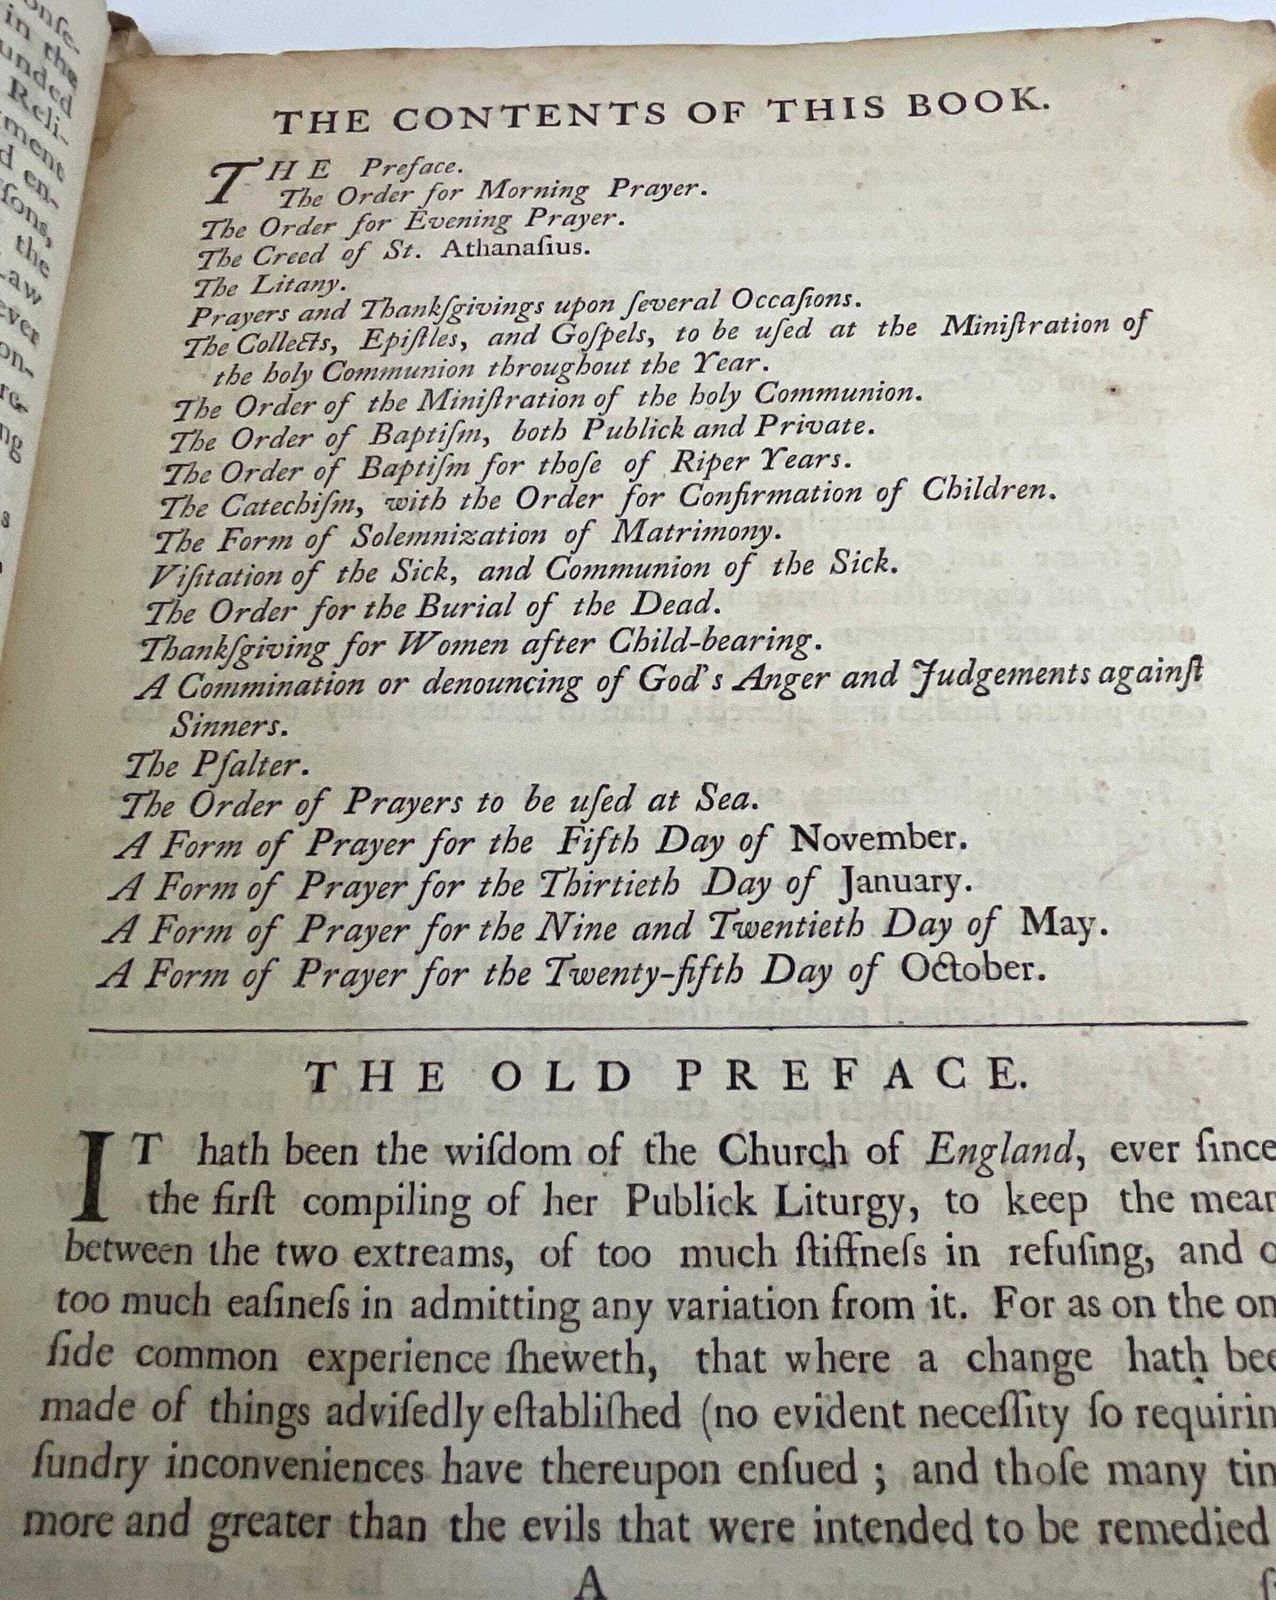 onſe-
in the
unded
Reli-
ment
d en-
ſons,
the
Law
ever
on-
re-
ng
s
THE CONTENTS OF THIS BOOK.
THE Preface.
The Order for Morning Prayer.
The Order for Evening Prayer.
The Creed of St. Athanaſius.
The Litany.
Prayers and Thankſgivings upon ſeveral Occaſions.
The Collects, Epiſtles, and Goſpels, to be uſed at the Miniſtration of
the holy Communion throughout the Year.
The Order of the Miniſtration of the holy Communion.
The Order of Baptiſm, both Publick and Private.
The Order of Baptiſm for thoſe of Riper Years.
The Catechiſm, with the Order for Confirmation of Children.
The Form of Solemnization of Matrimony.
Viſitation of the Sick, and Communion of the Sick.
The Order for the Burial of the Dead.
Thankſgiving for Women after Child-bearing.
A Commination or denouncing of God's Anger and Judgements againſt
Sinners.
The Pſalter.
The Order of Prayers to be uſed at Sea.
A Form of Prayer for the Fifth Day of November.
A Form of Prayer for the Thirtieth Day of January.
A Form of Prayer for the Nine and Twentieth Day of May.
A Form of Prayer for the Twenty-fifth Day of October.
THE OLD PREFACE.
IT hath been the wiſdom of the Church of England, ever ſince
the firſt compiling of her Publick Liturgy, to keep the mean
between the two extreams, of too much ſtiffneſs in refuſing, and o
too much eaſineſs in admitting any variation from it. For as on the on
ſide common experience ſheweth, that where a change hath bee
made of things adviſedly eſtabliſhed (no evident neceſſity ſo requirin
ſundry inconveniences have thereupon enſued ; and thoſe many tim
more and greater than the evils that were intended to be remedied
A